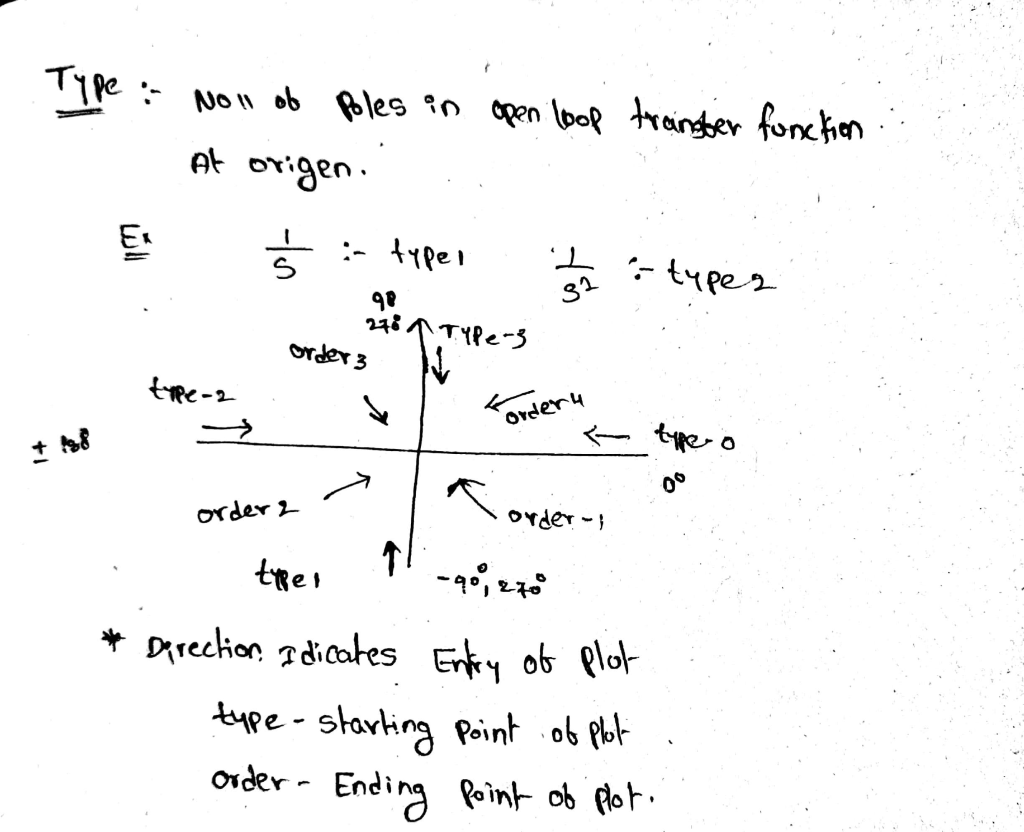 Type :- No॥ ob Poles in open loop transber function.
At origen.
Ex 1/S :- type1 1/S² :- type2
90
270 TYPe-3
order3
type-2
order4
type-0
0°
order2
order-1
type1
-90°, 270°
* Direction Idicates Entry ob plot
type - starting point ob plot
order - Ending point ob plot.